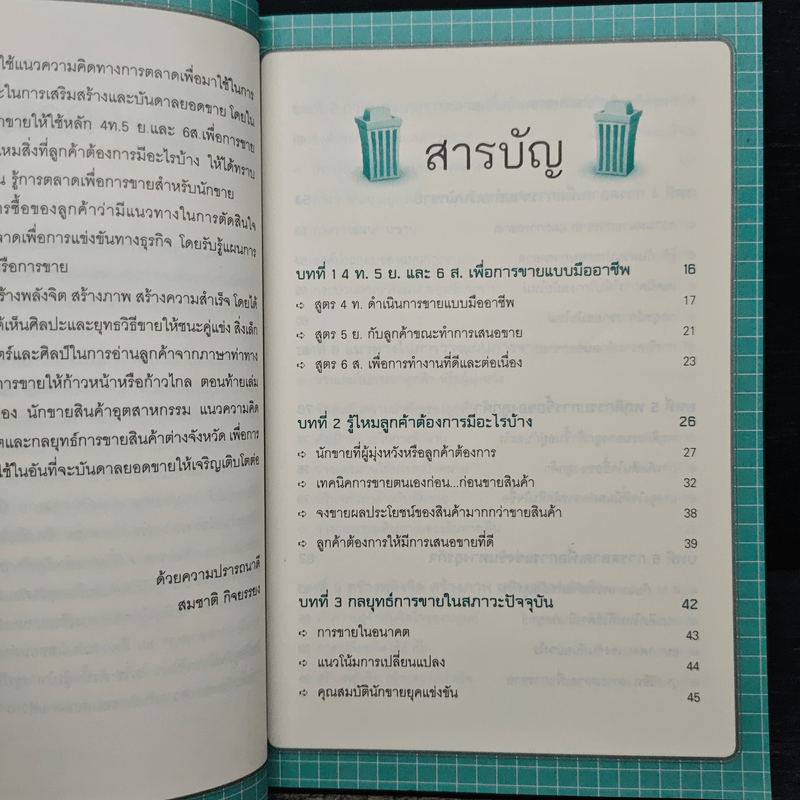 ใช้แนวความคิดทางการตลาดเพื่อมาใช้ในการ
ะในการเสริมสร้างและบันดาลยอดขาย โดยใน
าขายให้ใช้หลัก 4ท.5 ย.และ 6ส.เพื่อการขาย
ไหมสิ่งที่ลูกค้าต้องการมีอะไรบ้าง ให้ได้ทราบ
น รู้การตลาดเพื่อการขายสำหรับนักขาย
ารซื้อของลูกค้าว่ามีแนวทางในการตัดสินใจ
ลาดเพื่อการแข่งขันทางธุรกิจ โดยรับรู้แผนการ
รือการขาย
ร้างพลังจิต สร้างภาพ สร้างความสำเร็จ โดยได้
ด้เห็นศิลปะและยุทธวิธีขายให้ชนะคู่แข่ง สิ่งเล็ก
ตร์และศิลป์ในการอ่านลูกค้าจากภาษาท่าทาง
การขายให้ก้าวหน้าหรือก้าวไกล ตอนท้ายเล่ม
อง นักขายสินค้าอุตสาหกรรม แนวความคิด
ตและกลยุทธ์การขายสินค้าต่างจังหวัด เพื่อการ
ใช้ในอันที่จะบันดาลยอดขายให้เจริญเติบโตต่อ
ด้วยความปรารถนาดี
สมชาติ กิจยรรยง
สารบัญ
บทที่ 1 4 ท. 5 ย. และ 6 ส. เพื่อการขายแบบมืออาชีพ 16
➪ สูตร 4 ท. ดำเนินการขายแบบมืออาชีพ 17
➪ สูตร 5 ย. กับลูกค้าขณะทำการเสนอขาย 21
➪ สูตร 6 ส. เพื่อการทำงานที่ดีและต่อเนื่อง 23
บทที่ 2 รู้ไหมลูกค้าต้องการมีอะไรบ้าง 26
➪ นักขายที่ผู้มุ่งหวังหรือลูกค้าต้องการ 27
➪ เทคนิคการขายตนเองก่อน...ก่อนขายสินค้า 32
➪ จงขายผลประโยชน์ของสินค้ามากกว่าขายสินค้า 38
➪ ลูกค้าต้องการให้มีการเสนอขายที่ดี 39
บทที่ 3 กลยุทธ์การขายในสภาวะปัจจุบัน 42
➪ การขายในอนาคต 43
➪ แนวโน้มการเปลี่ยนแปลง 44
➪ คุณสมบัตินักขายยุคแข่งขัน 45